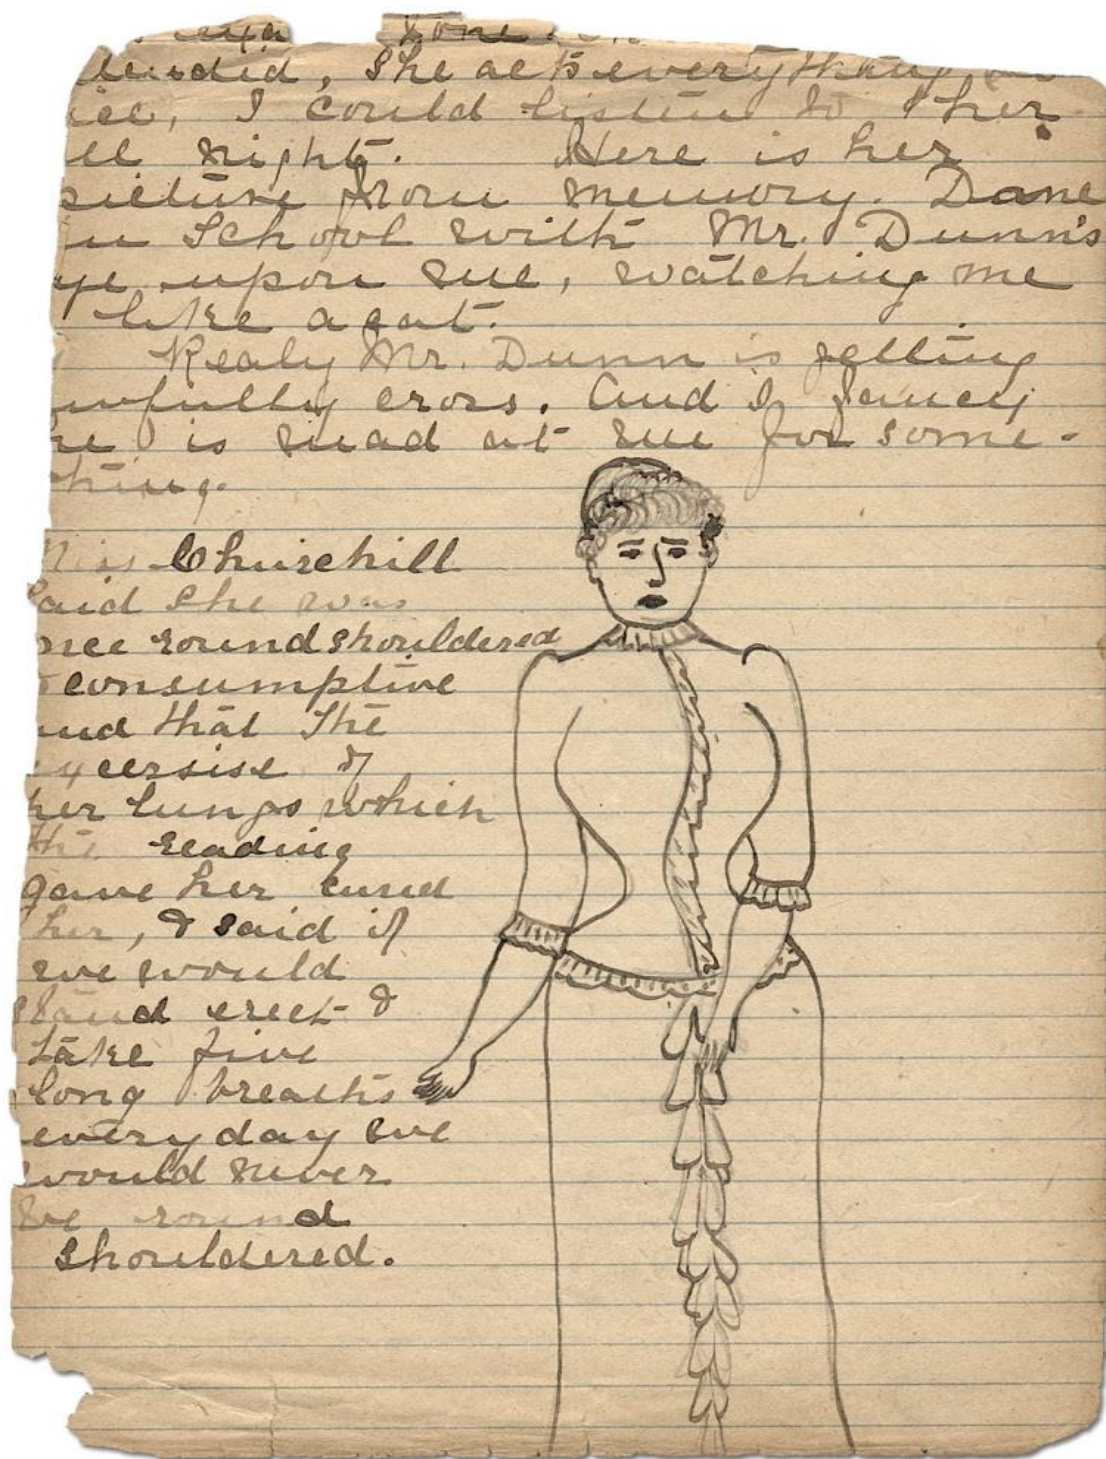 she acts everything
I could listen to her
ll night. Here is her
picture from memory. Done
in School with Mr. Dunn's
ye upon me, watching me
like a cat.
Realy Mr. Dunn is getting
wfully cross. And I fancy
he is mad at me for some-
thing.
Miss Churchill
said she was
once roundshouldered
& consumptive
and that the
excersise of
her lungs which
the reading
gave her cured
her, & said if
we would
stand erect &
take five
long breaths
every day we
would never
be round
shouldered.